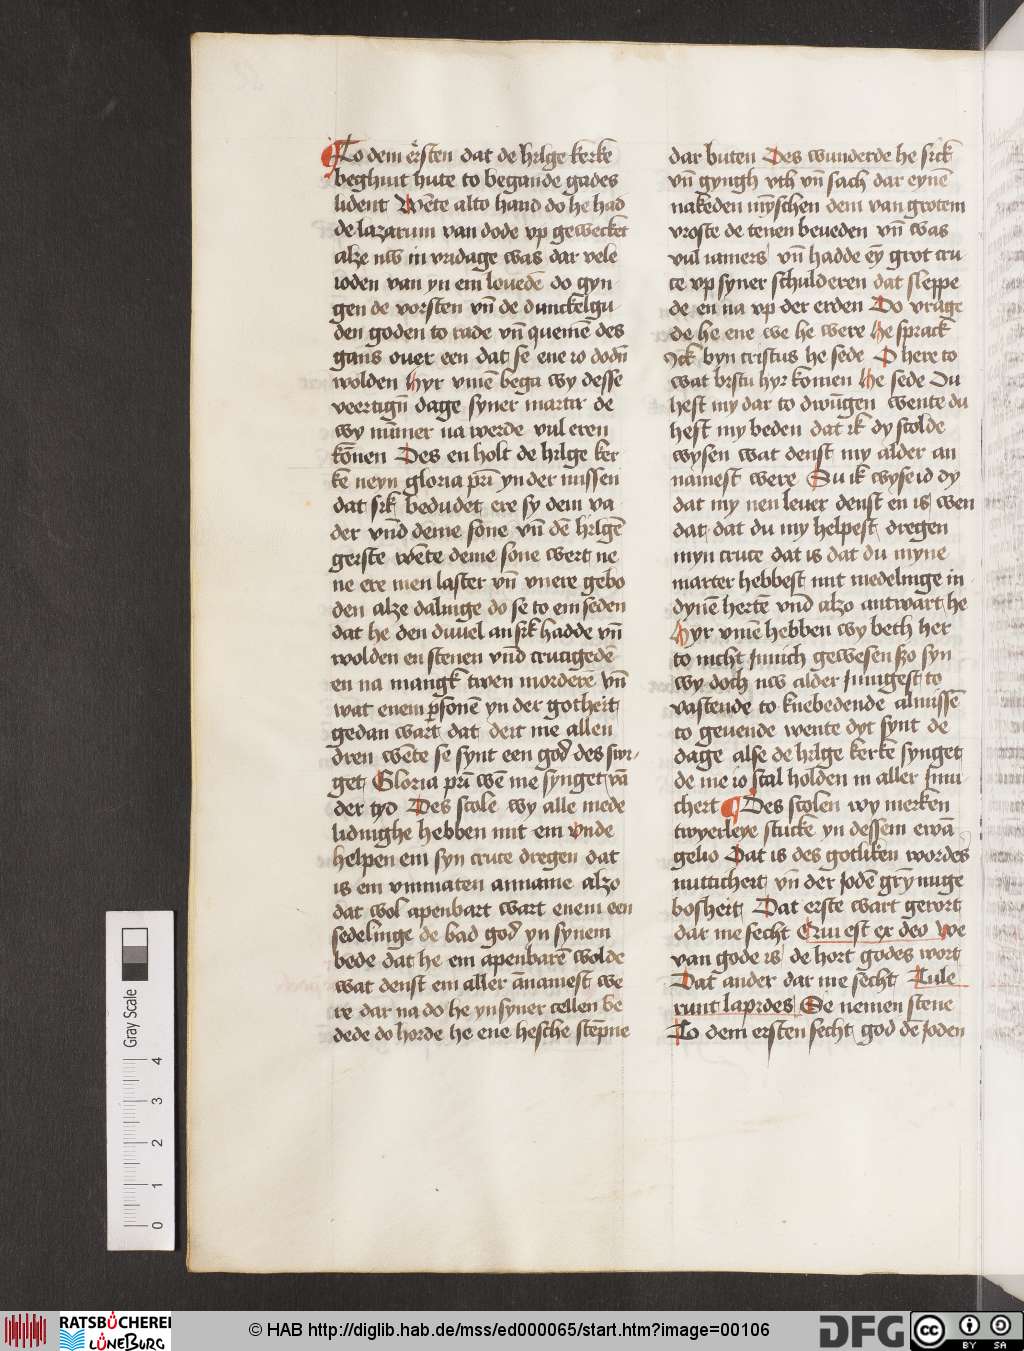 To dem ersten dat de hilge kerke
beghint hute to begande gades
lident Wēte alto hand do he had
de lazarum van dode vp gewecket
alze nw in vridage was dar vele
ioden van yn em louedē do gyn
gen de vorsten vn̄ de dunckelgu
den goden to rade vn̄ quemē des
gans ouer een dat se ene io dodn̄
wolden Hyr vmē bega wy desse
veertign̄ dage syner marter de
wy nūmer na werde vul eren
kōnen Des en holt de hilge ker
ke neyn gloria pri yn der missen
dat sik bedudet ere sy dem va
der vn̄d deme sone vn̄ dē hilgē
geyste wēte deme sone wert ne
ne ere men laster vn̄ vnere gebo
den alze dalinge do se to em seden
dat he den duuel an sik hadde vn̄
wolden en stenen vn̄d crucigedē
en na mangk twen mordere vn̄
wat enem psonē yn der gotheit
gedan wart dat deit me allen
dren wēte se synt een god des swi
get Gloria pri wē me synget vā
der tyd Des scole wy alle mede
lidinghe hebben mit em vnde
helpen em syn cruce dregen dat
is em vmmaten anname alzo
dat wol apenbart wart enem een
sedelinge de bad god yn synem
bede dat he em apenbarē wolde
wat denst em aller ānamest we
re dar na do he yn syner cellen be
dede do horde he ene hesche stepne
dar buten Des wunderde he sick
vn̄ gyngh vth vn̄ sach dar eynē
nakeden mȳschen dem van grotem
vroste de tenen beueden vn̄ was
vul iamers vn̄ hadde eȳ grot cru
ce vp syner schulderen dat sleppe
de en na vp der erden Do vrage
de he ene we he were He sprack
Ick byn cristus he sede O here to
wat bistu hyr komen He sede Du
hest my dar to dwūgen wente du
hest my beden dat ik dy scolde
wysen wat denst my alder an
namest were Su ik wyse id dy
dat my nen leuer denst en is wen
dat dat du my helpest dregen
myn cruce dat is dat du myne
marter hebbest mit medelinge in
dynē hertē vn̄d alzo antwart he
Hyr vmē hebben wy beth her
to nicht Innich gewesen szo syn
wy doch nw alder Innigest to
vastende to knebedende almissē
to geuende wente dyt synt de
dage alse de hilge kerke synget
de me io scal holden in aller Inni
cheit Des scolen wy merken
twyerleye stucke yn dessem ewā
gelio Dat is des gotliken wordes
nutticheit vn̄ der Jodē grȳnige
bosheit Dat erste wart gerort
dar me secht Qui est ex deo We
van gode is de hort godes wort
Dat ander dar me secht Tule
runt lapides Se nemen stene
To dem ersten secht god dē Joden
Gray Scale
4
3
2
1
0
RATSBÜCHEREI
LÜNEBURG
© HAB http://diglib.hab.de/mss/ed000065/start.htm?image=00106
DFG
cc
BY SA